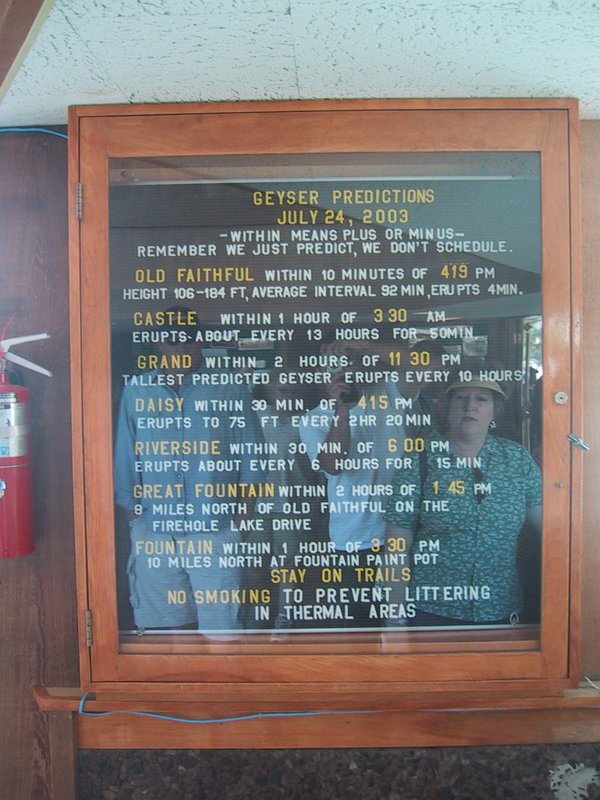 GEYSER PREDICTIONS
JULY 24, 2003
-WITHIN MEANS PLUS OR MINUS-
REMEMBER WE JUST PREDICT, WE DON'T SCHEDULE.
OLD FAITHFUL WITHIN 10 MINUTES OF 419 PM
HEIGHT 106-184 FT, AVERAGE INTERVAL 92 MIN, ERUPTS 4MIN.
CASTLE WITHIN 1 HOUR OF 3 30 AM
ERUPTS ABOUT EVERY 13 HOURS FOR 50MIN
GRAND WITHIN 2 HOURS OF 11 30 PM
TALLEST PREDICTED GEYSER ERUPTS EVERY 10 HOURS
DAISY WITHIN 30 MIN. OF 415 PM
ERUPTS TO 75 FT EVERY 2HR 20MIN
RIVERSIDE WITHIN 30 MIN. OF 6 00 PM
ERUPTS ABOUT EVERY 6 HOURS FOR 15 MIN
GREAT FOUNTAIN WITHIN 2 HOURS OF 1 45 PM
8 MILES NORTH OF OLD FAITHFUL ON THE
FIREHOLE LAKE DRIVE
FOUNTAIN WITHIN 1 HOUR OF 3 30 PM
10 MILES NORTH AT FOUNTAIN PAINT POT
STAY ON TRAILS
NO SMOKING TO PREVENT LITTERING
IN THERMAL AREAS